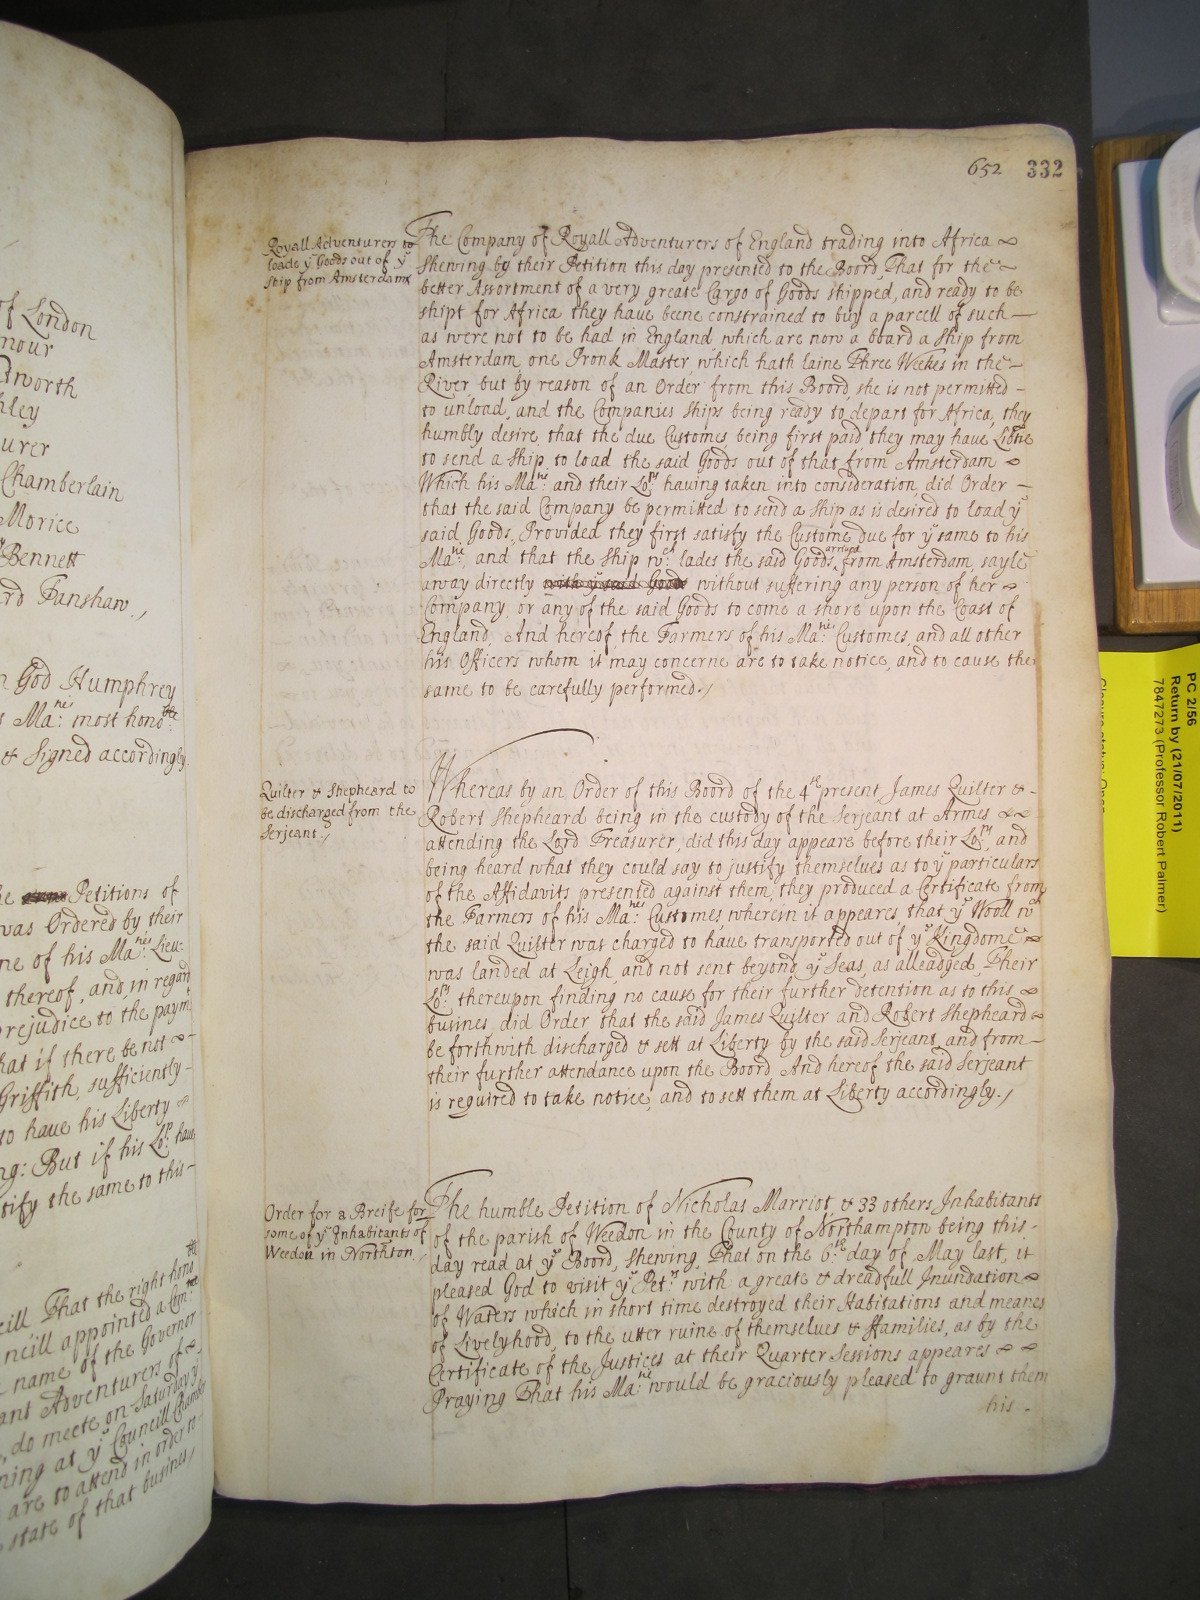 of London
mour
dworth
hley
urer
Chamberlain
Morice
Bennett
rd Fanshaw./
n God Humphrey
s Ma:ties most hono:ble
& Signed accordingly.
he Petitions of
was Ordered by their
ne of his Ma:ties Lieu:
thereof, and in regard
prejudice to the paym
hat if there be not
Griffith, sufficiently
to have his Liberty
ng: But if his Lo:p have
tify the same to this
cill That the right hono:
ncill appointed a
name of the Governor
ant Adventurers of
, do meete on Saturday
ning at ye Councill Chamber
are to attend in order to
state of that busines/
652 332
Royall Adventurers to
lade ye Goods out of ye
ship from Amsterdam
The Company of Royall Adventurers of England trading into Africa
Shewing by their Petition this day presented to the Board, That for the
better Assortment of a very greate Cargo of Goods shipped, and ready to be
shipt for Africa they have beene constrained to buy a parcell of such
as were not to be had in England which are now a board a Ship from
Amsterdam one Jronk Master, which hath laine Three Weekes in the
River, but by reason of an Order from this Board, she is not permitted
to unload, and the Companies Ships being ready to depart for Africa, they
humbly desire, that the due Customes being first paid they may have Libtie
to send a Ship, to load the said Goods out of that from Amsterdam
Which his Ma:tie and their Lo:pps having taken into consideration did Order
that the said Company be permitted to send a Ship as is desired to load ye
said Goods, Provided they first satisfy the Custome due for ye same to his
Ma:tie, and that the Ship wch lades the said Goods arrived from Amsterdam, sayle
away directly with ye said Goods without suffering any person of her
Company, or any of the said Goods to come a shore upon the Coast of
England, And hereof the Farmers of his Ma:ties Customes, and all other
his Officers whom it may concerne are to take notice, and to cause the
same to be carefully performed./
Quilter & Shepheard to
be discharged from the
Serjeant./
Whereas by an Order of this Board of the 4th present, James Quilter &
Robert Shepheard being in the custody of the Serjeant at Armes
attending the Lord Treasurer, did this day appeare before their Lo:pps, and
being heard what they could say to justify themselves as to ye particulars
of the Affidavits presented against them, they produced a Certificate from
the Farmers of his Ma:ties Customes, wherein it appeares that ye Wooll wch
the said Quilter was charged to have transported out of ye Kingdome
was landed at Leigh, and not sent beyond ye Seas, as alleadged, Their
Lo:pps thereupon finding no cause for their further detention as to this
busines, did Order that the said James Quilter and Robert Shepheard
be forthwith discharged & sett at Liberty by the said Serjeant, and from
their further attendance upon the Board And hereof the said Serjeant
is required to take notice, and to sett them at Liberty accordingly./
Order for a Breife for
some of ye Inhabitants of
Weedon in Northton.
The humble Petition of Nicholas Marriot, & 33 others Inhabitants
of the parish of Weedon in the County of Northampton being this
day read at ye Board, shewing, That on the 6th day of May last, it
pleased God to visit ye Pet:rs with a great & dreadfull Inundation
of Waters which in short time destroyed their Habitations and meanes
of Livelyhood, to the utter ruine of themselves & ffamilies, as by the
Certificate of the Justices at their Quarter Sessions appeares
Praying That his Ma:tie would be graciously pleased to graunt them
his
PC 2/56
Return by (21/07/2011)
7847273 (Professor Robert Palmer)